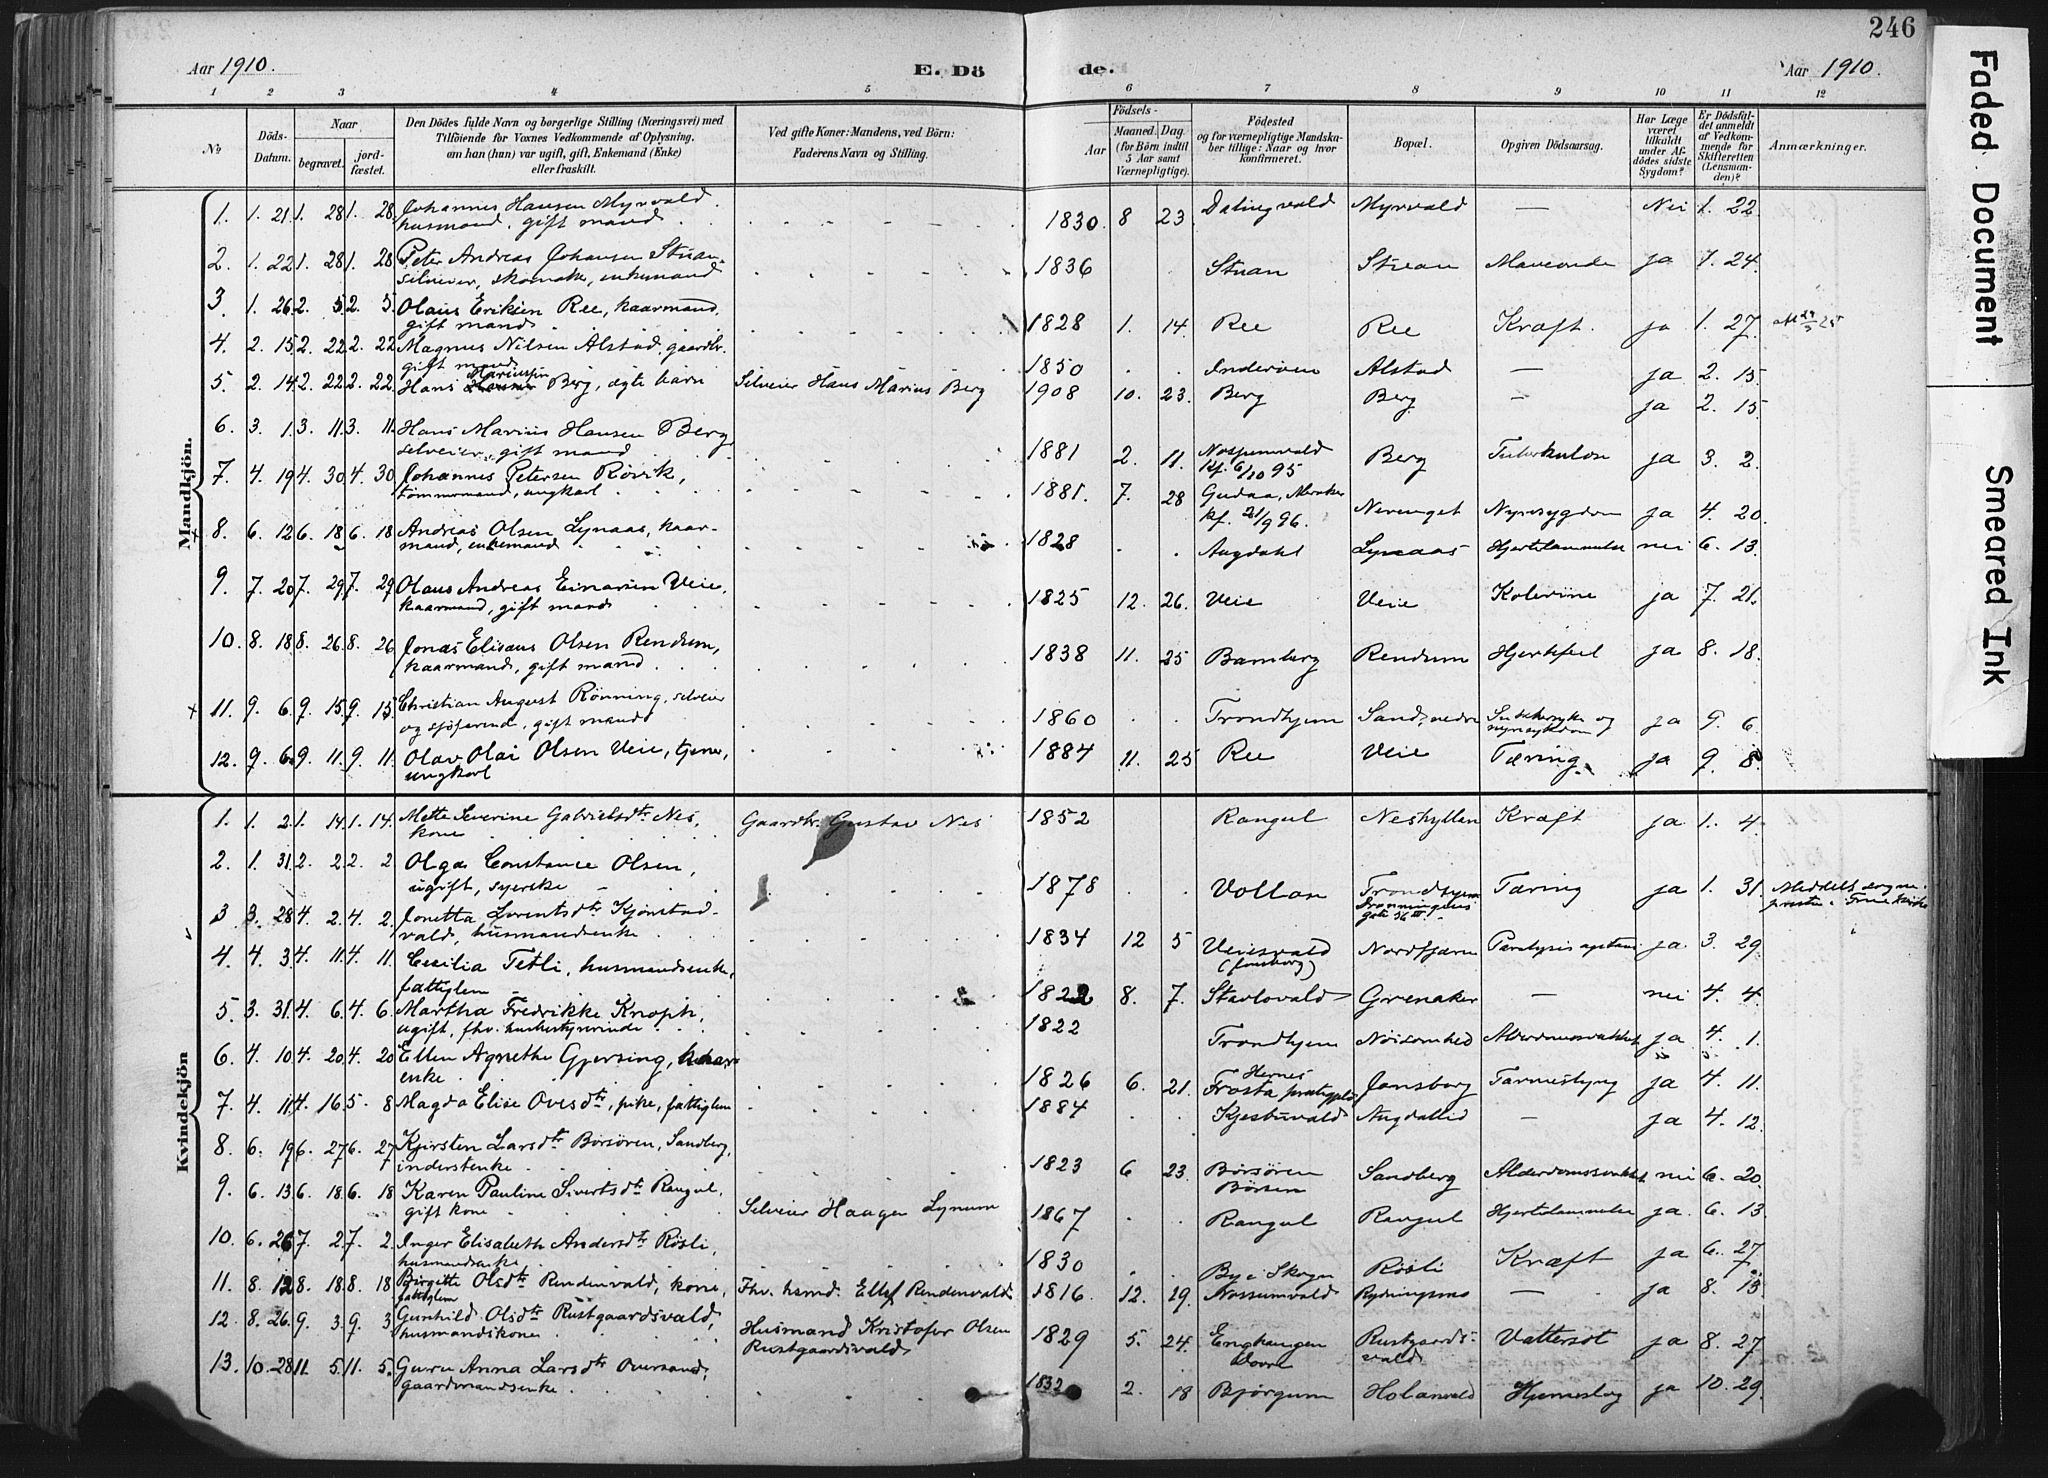 246
Aar 1910.
E. Döde.
Aar 1910.
1 2 3 4 5 6 7 8 9 10 11 12
No
Döds-Datum.
Naar
begravet.
jordfæstet.
Den Dödes fulde Navn og borgerlige Stilling (Næringsvei) med
Tilföiende for Voxnes Vedkommende af Oplysning,
om han (hun) var ugift, gift, Enkemand (Enke)
eller fraskilt.
Ved gifte Koner: Mandens, ved Börn:
Faderens Navn og Stilling.
Födsels-
Aar
Maaned. Dag.
(for Börn indtil
5 Aar samt
Værnepligtige).
Födested
og for værnepligtige Mandska-
ber tillige: Naar og hvor
konfirmeret.
Bopæl.
Opgiven Dödsaarsag.
Har Læge
været
tilkaldt
under Af-
dödes sidste
Sygdom?
Er Dödsfal-
det anmeldt
af Vedkom-
mende for
Skifteretten
(Lensman-
den)?
Anmærkninger.
Mandkjön.
1. 1. 21. 1. 28. 1. 28. Johannes Hansen Myrvald. 1830 8 23 Dalingvald Myrvald — Nei 1. 22.
husmand, gift mand
2. 1. 22. 1. 28. 1. 28. Peter Andreas Johansen Stuan. 1836 Stuan Stuan ja 1. 24.
selveier, enkemand
3. 1. 26. 2. 5. 2. 5. Olaus Eriksen Ree, kaarmand, 1828 1. 14. Ree Ree Kræft. ja 1. 27.
gift mand
4. 2. 15. 2. 22. 2. 22. Magnus Nilsen Alstad, gaardbr. 1850 Inderöen Alstad — ja 2. 15.
gift mand
5. 2. 14. 2. 22. 2. 22. Hans Mariussen Berg, ægte barn Selveier Hans Marius Berg 1908 10. 23. Berg Berg — ja 2. 15.
6. 3. 1. 3. 11. 3. 11. Hans Marius Hansen Berg, 1881 2. 11. Berg Tuberkulose ja 3. 2.
selveier, gift mand kf. 6/10 95
7. 4. 19. 4. 30. 4. 30. Johannes Petersen Rövik, 1881. 7. 28 Gudaa, Meraker Nyresygdom ja 4. 20.
tømmermand, ungkarl kf. 21/9 96.
8. 6. 12. 6. 18. 6. 18 Andreas Olsen Lynaas, kaar- 1828 Augdahl Lynaas Hjertelammelse nei 6. 13.
mand, enkemand
9. 7. 20. 7. 29. 7. 29 Olaus Andreas Einarsen Veie, 1825 12. 26. Veie Veie Kolerine ja 7. 21.
kaarmand, gift mand
10. 8. 18. 8. 26. 8. 26 Jonas Elisæus Olsen Rendum, 1838 11. 25 Bamberg Rendum Hjertefeil ja 8. 18.
kaarmand, gift mand
11. 9. 6. 9. 15. 9. 15. Christian August Rönning, selveier 1860 Trondhjem Sand, nedre Sukkersyke og ja 9. 6
og sjöfarende, gift mand nyresygdom
12. 9. 6. 9. 11. 9. 11. Olav Olai Olsen Veie, tjener, 1884 11. 25 Ree Veie Tæring. ja 9. 8.
ungkarl
Kvindekjön
1. 1. 2. 1. 14. 1. 14. Mette Severine Gabrielsdtr. Nes, Gaardbr. Gustav Nes 1852 Rangul Neshyllan Kræft ja 1. 4.
kone
2. 1. 31. 2. 2. 2. 2 Olga Constance Olsen, 1878 Vollan Trondhjem Tæring ja 1. 31.
ugift, syerske Dronningens
gate 36 III.
3 3. 28 4. 2. 4. 2 Jonetta Lorentsdtr Kjönstad- 1834 12 5 Veiesvald Nordfjæra Paralysis agitans ja 3. 29
vald, husmandsenke (Jonsborg)
4. 4. 3. 4. 11. 4. 11 Cecilia Tetli, husmandsenke, 1822 8. 7. Grenaker — nei 4. 4.
fattiglem
5 3. 31. 4. 6. 4. 6. Martha Fredrikke Knoph, 1822 Trondhjem Alderdomssvakhet ja 4. 1.
ugift, fhv. husbestyrerinde
6 4. 10 4. 20 4. 20 Ellen Agnethe Gjersing, 1826 6. 21. Hernes Jonsborg Tarmeslyng ja 4. 11.
enke. Frosta
7. 4. 11. 4. 16. 5. 8 Magda Elise Ovesdtr, pike, fattiglem 1884 Kjesbuvald — ja 4. 12.
8. 6. 19. 6. 27 6. 27 Kjersten Larsdtr Börsören, Sandberg, 1823 6 23. Börsören Sandberg Alderdomssvakhet nei 6. 20.
inderstenke. Börsen
9. 6. 13. 6. 18. 6. 18 Karen Pauline Sivertsdtr Rangul, Selveier Haagen Lynum 1867 Rangul Rangul Hjertelammelse ja. 6. 13.
gift kone
10. 6. 26 7. 2. 7. 2. Inger Elisabeth Andersdtr Rösli, 1830 By i Skogn Rösli Kræft ja 6. 27
husmandsenke
11. 8. 12 8. 18. 8. 18 Birgitte Olsdtr Rendenvald, kone, Fhv. husmd. Ellef Rendenvald 1816 12. 29. Nossumvald Rydningsmo — ja 8. 13
fattiglem
12. 8. 26. 9. 3. 9. 3 Gunhild Olsdtr Rustgaardsvald, Husmand Kristofer Olsen 1829 5. 24. Enghaugen Rustgaards- Vattersot ja 8. 27
husmandskone Rustgaardsvald vald
13. 10. 28 11. 5 11. 5. Guru Anna Larsdtr Oversand, 1832 2. 18 Bjørgum Holanvald Hjerneslag ja 10. 29.
gaardmandsenke
Faded Document
Smeared Ink